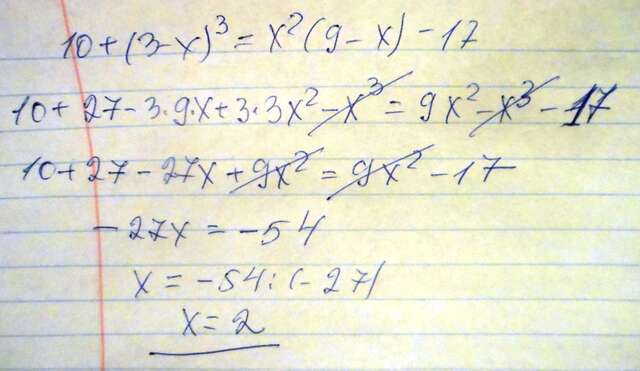 10+(3-x)³=x²(9-x)-17
10+27-3·9·x+3·3x²-x³=9x²-x³-17
10+27-27x+9x²=9x²-17
-27x=-54
x=-54:(-27)
x=2